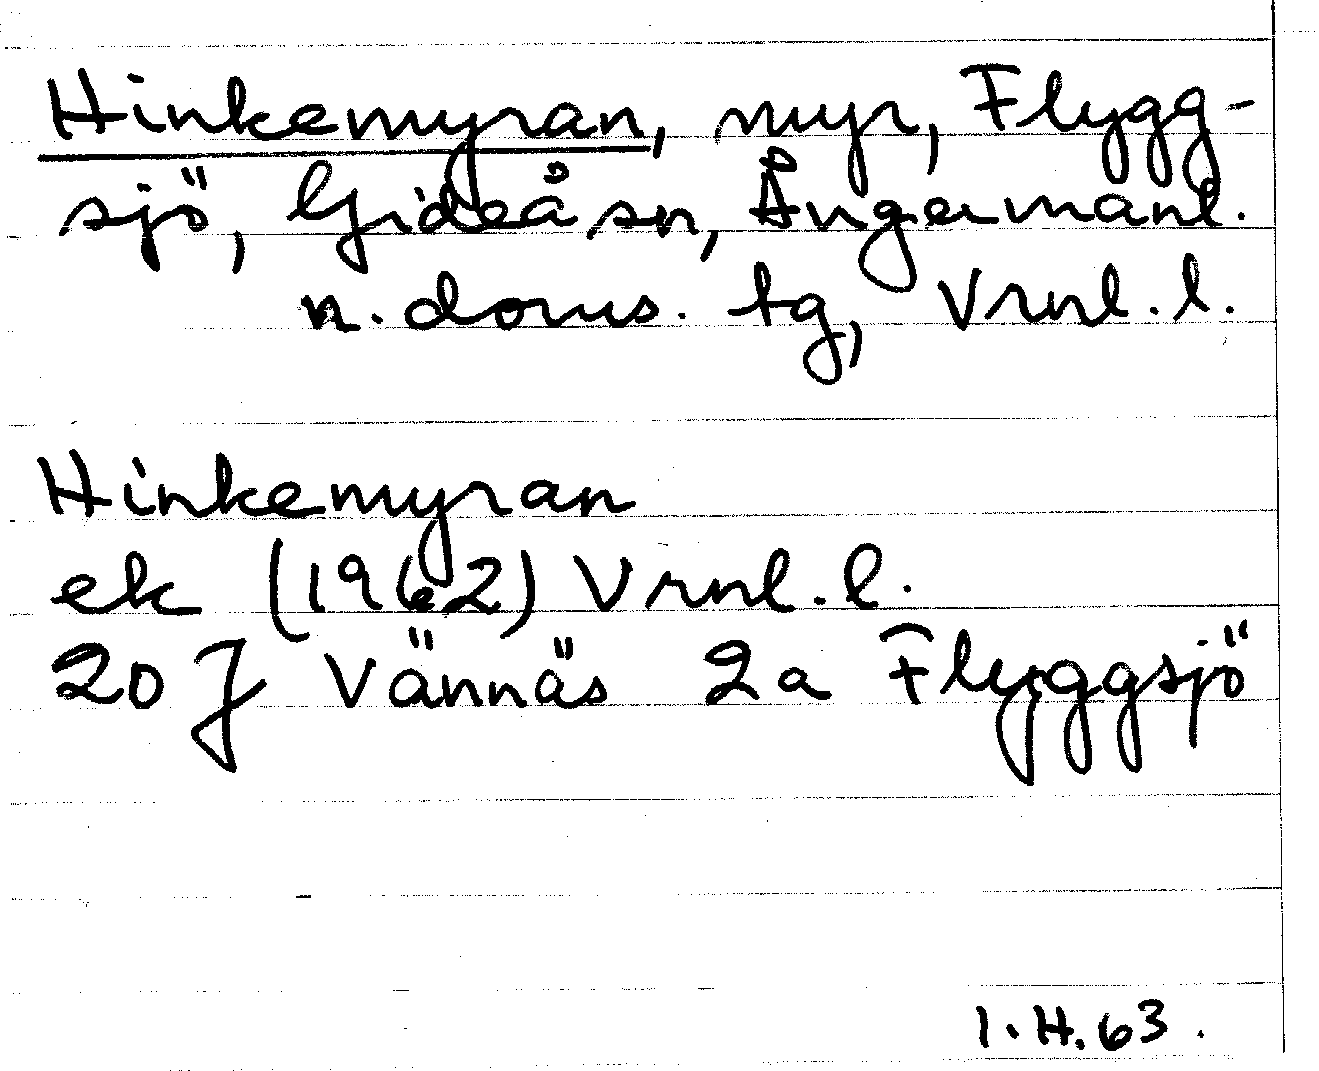 Hinkemyran, myr, Flygg-
sjö, Gideå sn, Ångermanl.
n. doms. tg, Vrnl. l.
Hinkemyran
ek (1962) Vrnl. l.
20 J Vännäs 2a Flyggsjö
I. H. 63.